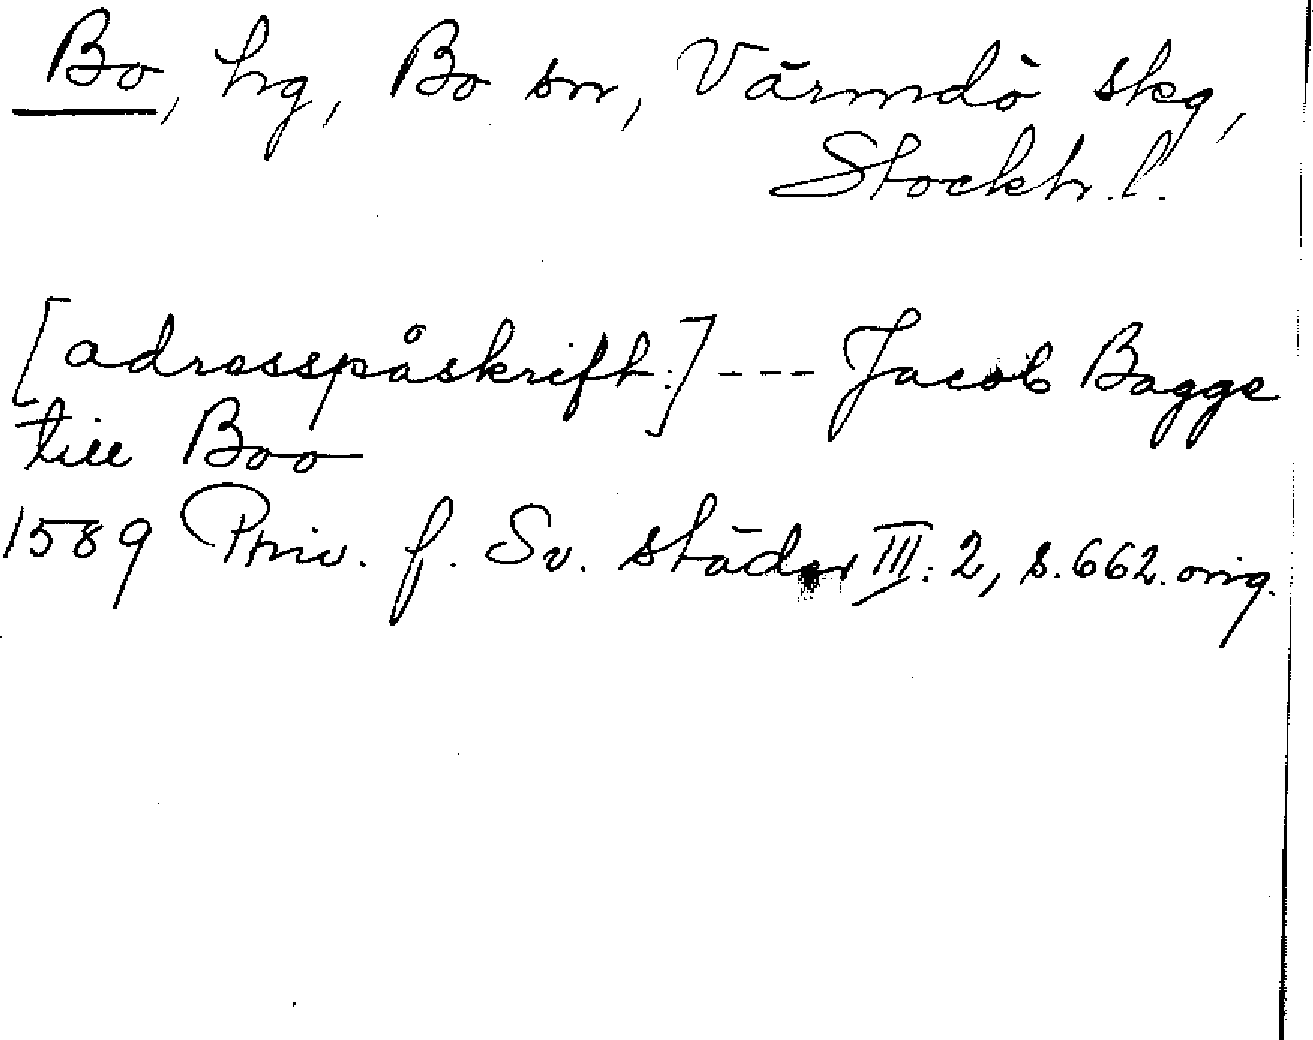 Bo, hg, Bo sn, Värmdö skg,
Stockh. l.
[adresspåskrift:] --- Jacob Bagge
till Boo
1589 Priv. f. Sv. städer III: 2, s. 662. orig.